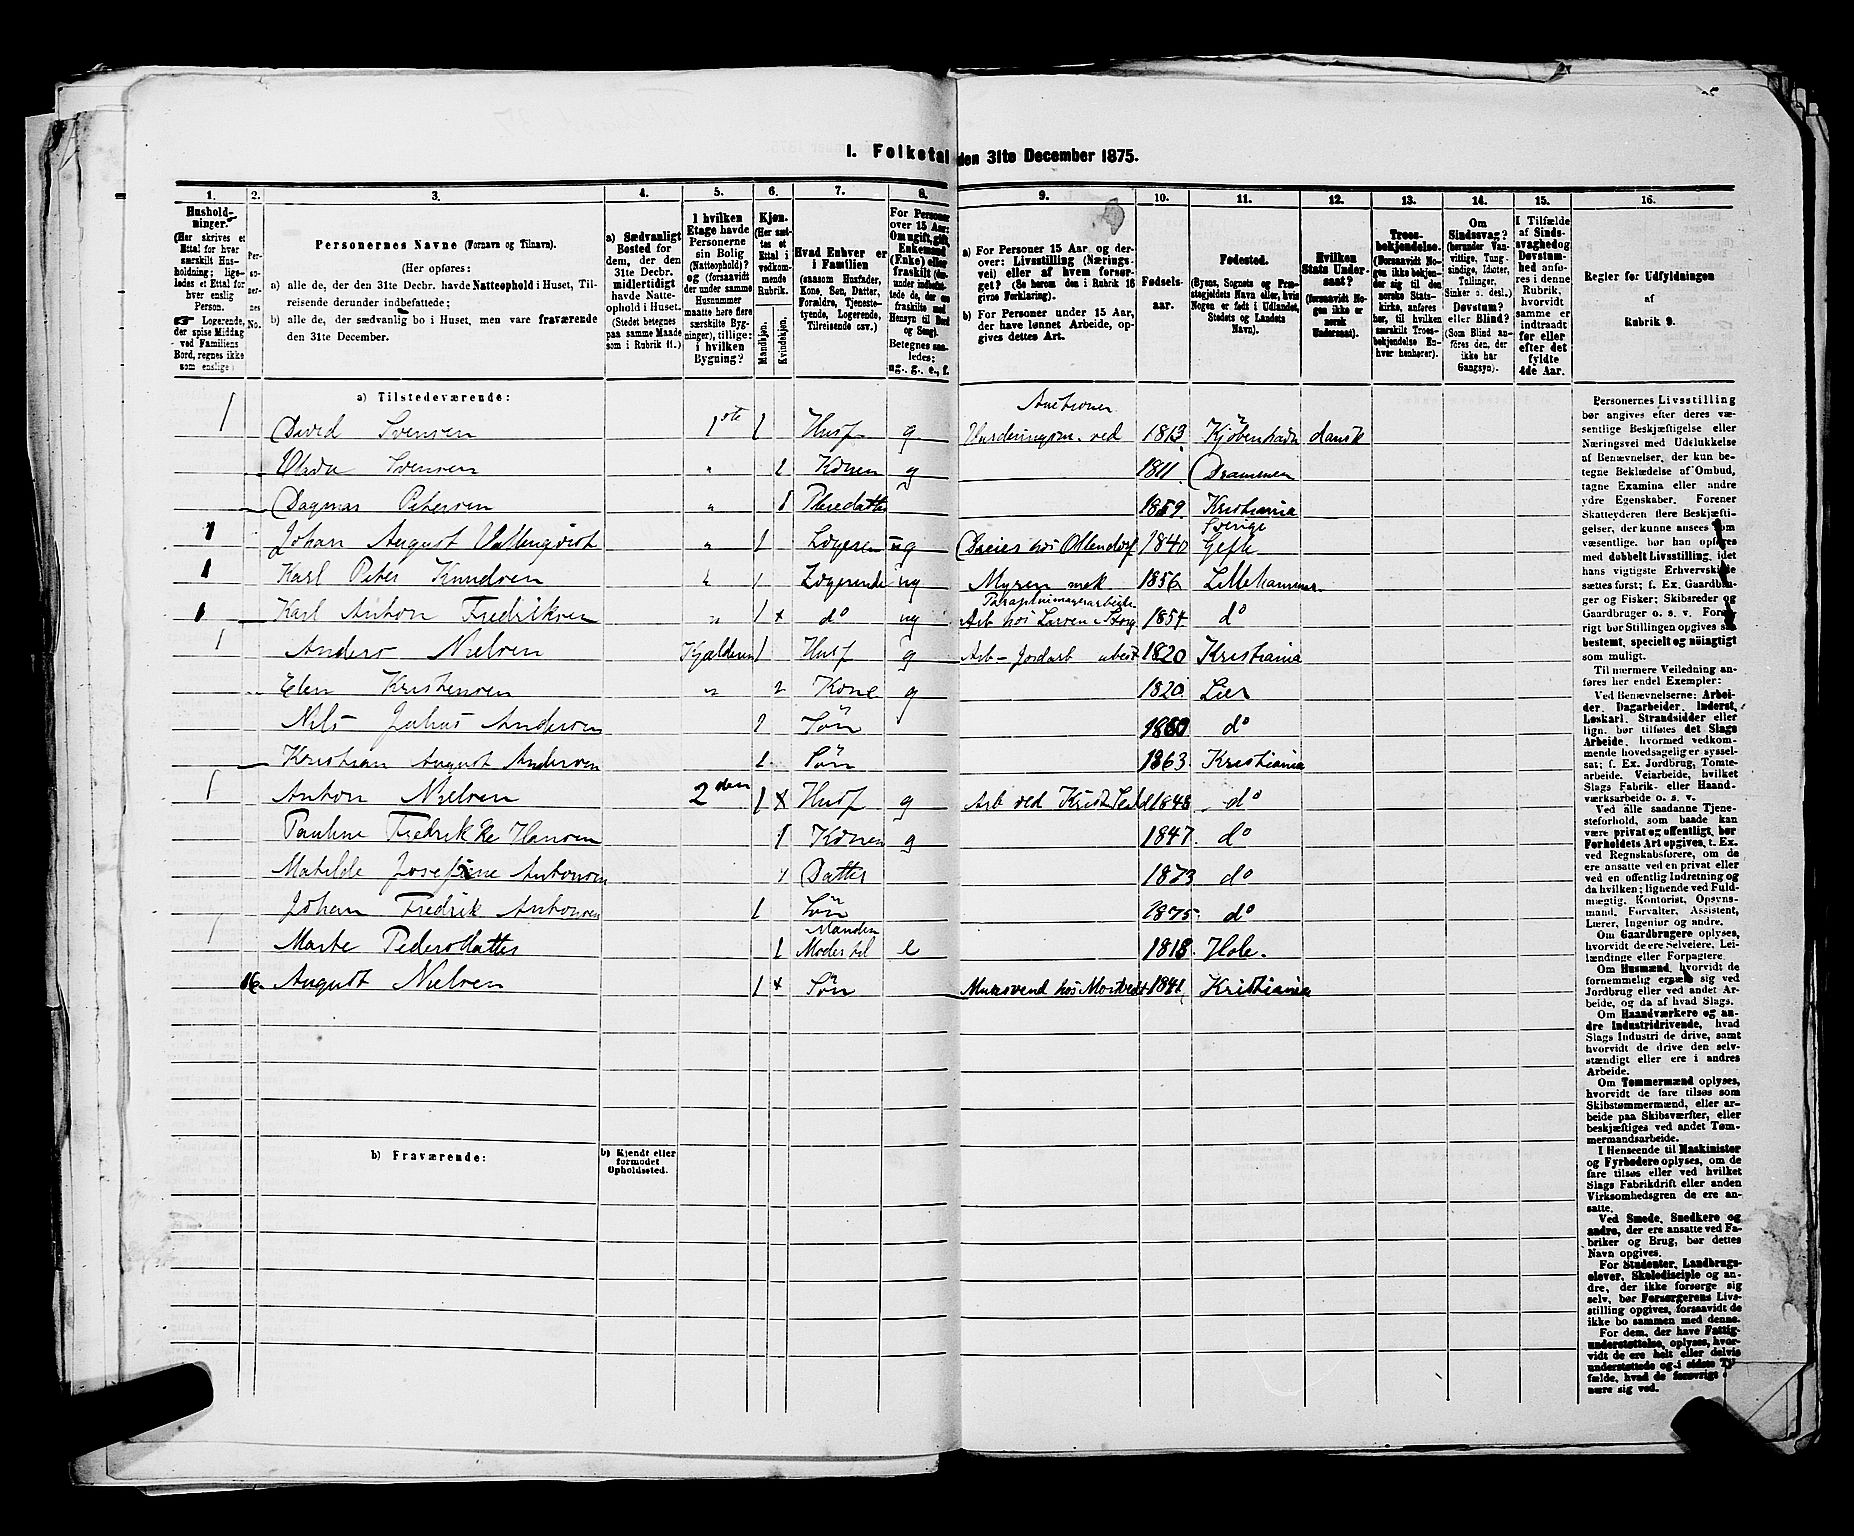 I. Folketal den 31te December 1875.
1. 2. 3. 4. 5. 6. 7. 8. 9. 10. 11. 12. 13. 14. 15. 16.
Husholdninger.
(Her skrives et Ettal for hver særskilt Husholdning; ligeledes et Ettal for hver enslig Person.
Logerende, der spise Middag ved Familiens Bord, regnes ikke som enslige)
Personernes No.
Personernes Navne (Fornavn og Tilnavn).
(Her opføres:
a) alle de, der den 31te Decbr. havde Natteophold i Huset, Tilreisende derunder indbefattede;
b) alle de, der sædvanlig bo i Huset, men vare fraværende den 31te December.
a) Sædvanligt Bosted for dem, der den 31te Decbr. midlertidigt havde Natteophold i Huset.
(Stedet betegnes paa samme Maade som i Rubrik 11.)
I hvilken Etage havde Personerne sin Bolig (Natteophold)? og (forsaavidt der under samme Husnummer maatte høre flere særskilte Bygninger), tillige: i hvilken Bygning?
Kjøn. (Her sættes et Ettal i vedkommende Rubrik.
Mandkjøn. Kvindekjøn.
Hvad Enhver er i Familien (saasom Husfader, Kone, Søn, Datter, Forældre, Tjenestetyende, Logerende, Tilreisende osv.)
For Personer over 15 Aar: Om ugift, gift, Enkemand (Enke) eller fraskilt
Betegnes saaledes: ug., g., e., f.
a) For Personer 15 Aar og derover: Livsstilling (Næringsvei) eller af hvem forsørget? (Se herom den i Rubrik 16 givne Forklaring).
b) For Personer under 15 Aar, der have lønnet Arbeide, opgives dettes Art.
Fødselsaar.
Fødested.
(Byens, Sognets og Præstegjeldets Navn eller, hvis Nogen er født i Udlandet, Stedets og Landets Navn).
Hvilken Stats Undersaat?
(forsaavidt Nogen ikke er norsk Undersaat).
Troesbekjendelse.
(Forsaavidt Nogen ikke bekjender sig til den norske Statskirke, anføres her, til hvilken særskilt Troesbekjendelse Enhver henhører).
Om Sindssvag? (herunder Vanvittige, Tungsindige, Idioter, Tullinger, Sinker o. desl.)
Døvstum? eller Blind? (Som Blind anføres den, der ikke har Gangsyn).
I Tilfælde af Sindssvaghed og Døvstumhed anføres i denne Rubrik, hvorvidt samme er indtraadt før eller efter det fyldte 4de Aar.
Regler for Udfyldningen af Rubrik 9.
a) Tilstedeværende:
Auctioner
1 David Svensen 1ste 1 Husf g Vurderingsm. ved 1813 Kjøbenhavn dansk
Svensen " Konen g 1811. Drammen
Dagmar Petersen " 1 Pleiedatter 1859. Kristiania
Sverige
1 Johan August " 1 Logeren ug Dreier hos Ollendorf 1840 Gefle
1 Karl Peter Knudsen " 1 Logerende ug Myren mek 1856 Lillehammer
1 Karl Anton Fredriksen " 1 x do ug Arb hos Larsen 1854 do
1 Anders Nielsen Kjelderen 1 Husf g Arb – Jordarb ubest 1820 Kristiania
Elen Kristensen " Kone g 1820. Lier
Nils Andersen 1 Søn 1860 do
Kristian August Andersen 1 Søn 1863. Kristiania
1 Anton Nielsen 2den 1 x Husf g Arb ved Krist 1848 do
Pauline Fredrikke Hansen 1 Konen g 1847. do
Matilde Josefine Antonsen 1 Datter 1873 do
Johan Fredrik Antonsen 1 Søn 1875. do
Manden
1 Marte Pedersdatter 1 Moder til e 1818. Hole.
16 August Nielsen 1 x Søn Mursvend hos 1841 Kristiania
b) Fraværende:
b) Kjendt eller formodet Opholdssted.
Personernes Livsstilling bør angives efter deres væsentlige Beskjæftigelse eller Næringsvei med Udelukkelse af Benævnelser, der kun betegne Beklædelse af Ombud, tagne Examina eller andre ydre Egenskaber. Forener Skatteyderen flere Beskjæftigelser, der kunne ansees som væsentlige, bør han opføres med dobbelt Livsstilling, idet hans vigtigste Erhvervskilde sættes først; f. Ex. Gaardbruger og Fisker; Skibsreder og Gaardbruger o. s. v. Forøvrigt bør Stillingen opgives saa bestemt, specielt og nøiagtigt som muligt.
Til nærmere Veiledning anføres her endel Exempler:
Ved Benævnelserne: Arbeider, Dagarbeider, Inderst, Løskarl, Strandsidder eller lign. bør tilføies det Slags Arbeide, hvormed vedkommende hovedsagelig er sysselsat; f. Ex. Jordbrug, Tomtearbeide, Veiarbeide, hvilket Slags Fabrik- eller Haandværksarbeide o. s. v.
Ved alle saadanne Tjenesteforhold, som baade kan være privat og offentligt, bør Forholdets Art opgives, t. Ex. ved Regnskabsførere, om de ere ansatte ved en privat eller ved en offentlig Indretning og da hvilken; lignende ved Fuldmægtig, Kontorist, Opsynsmand, Forvalter, Assistent, Lærer, Ingeniør og andre.
Om Gaardbrugere oplyses, hvorvidt de ere Selveiere, Leilændinge eller Forpagtere.
Om Husmænd, hvorvidt de fornemmelig ernære sig ved Jordbrug eller ved andet Arbeide, og da af hvad Slags.
Om Haandværkere og andre Industridrivende, hvad Slags Industri de drive, samt hvorvidt de drive den selvstændigt eller ere i andres Arbeide.
Om Tømmermænd oplyses, hvorvidt de fare tilsøs som Skibstømmermænd, eller arbeide paa Skibsværfter, eller beskjæftiges ved andet Tømmermandsarbeide.
I Henseende til Maskinister og Fyrbødere oplyses, om de fare tilsøs eller ved hvilket Slags Fabrikdrift eller anden Virksomhedsgren de ere ansatte.
Ved Smede, Snedkere og andre, der ere ansatte ved Fabriker og Brug, bør dettes Navn opgives.
For Studenter, Landbrugselever, Skoledisciple og andre, der ikke forsørge sig selv, bør Forsørgerens Livsstilling opgives, forsaavidt de ikke bo sammen med denne.
For dem, der have Fattigunderstøttelse, oplyses, hvorvidt de ere helt eller delvis understøttede og i sidste Tilfælde, hvad de forøvrigt nære sig ved.